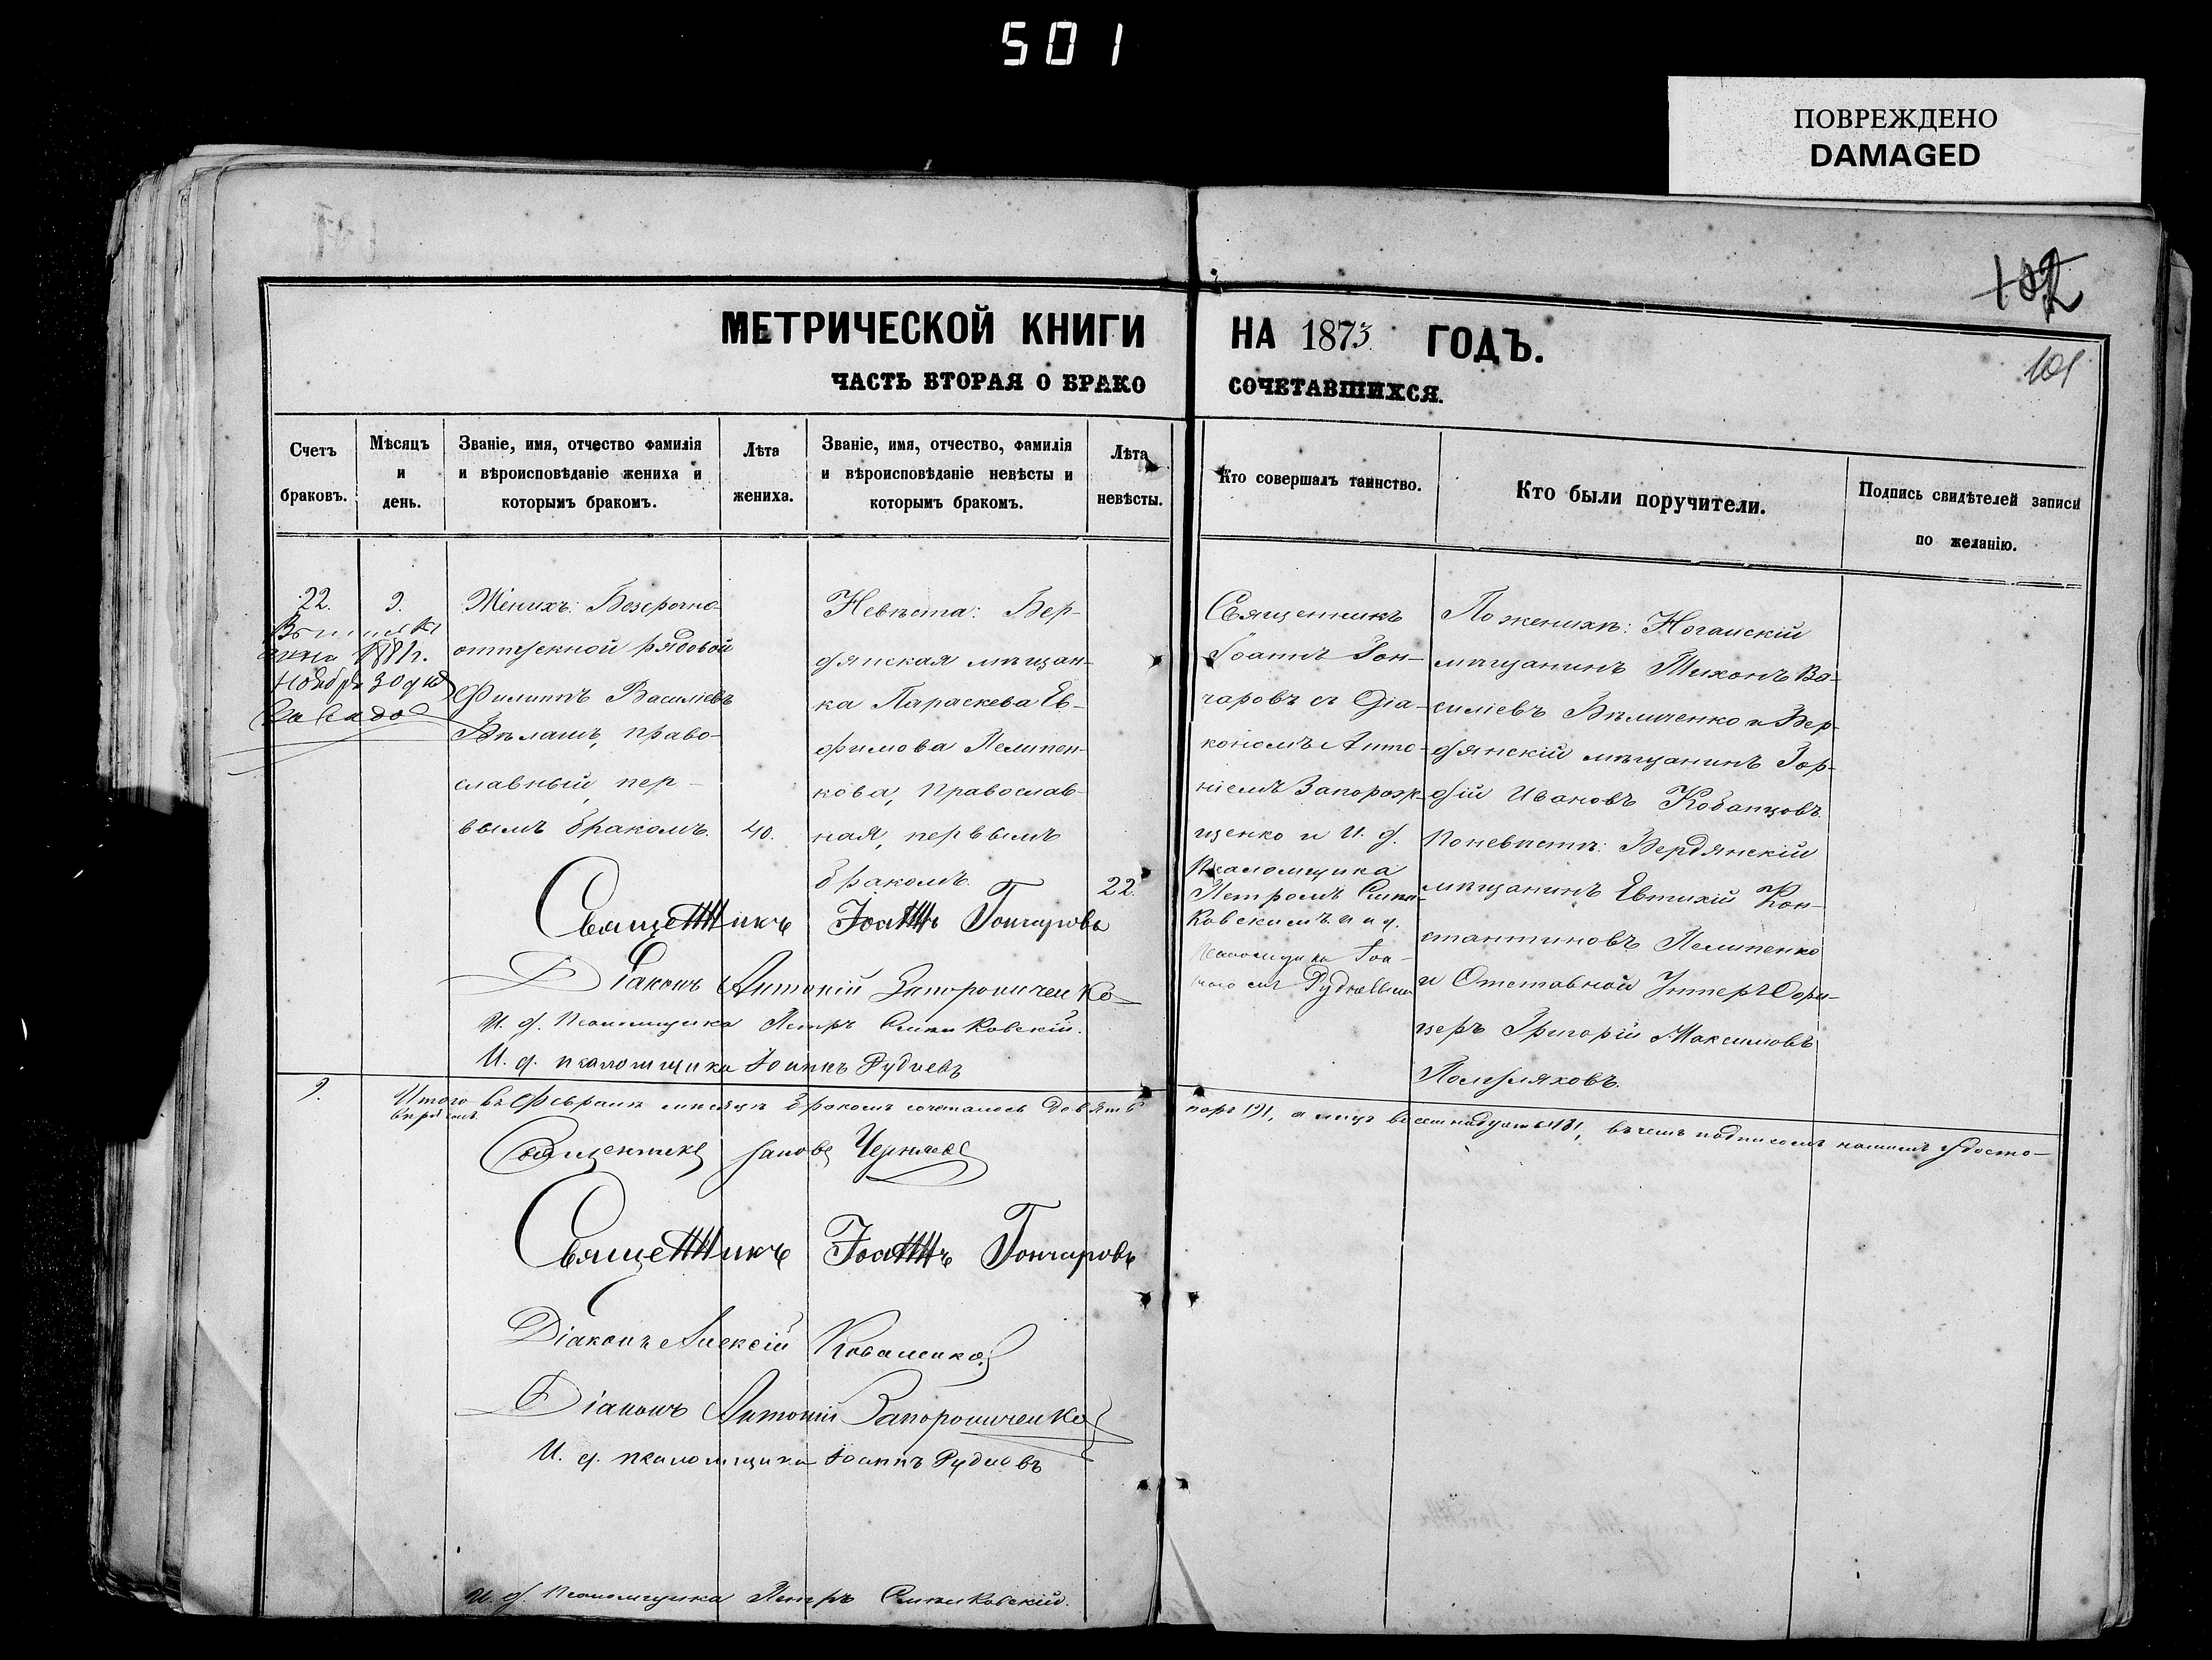 501
ПОВРЕЖДЕНО
DAMAGED
102
101
МЕТРИЧЕСКОЙ КНИГИ НА 1873 ГОДЪ.
ЧАСТЬ ВТОРАЯ О БРАКО СОЧЕТАВШИХСЯ.
Счетъ браковъ.
Мѣсяцъ и день.
Званіе, имя, отчество фамилія
и вѣроисповѣданіе жениха и
которымъ бракомъ.
Лѣта жениха.
Званіе, имя, отчество, фамилія
и вѣроисповѣданіе невѣсты и
которымъ бракомъ.
Лѣта невѣсты.
Кто совершалъ таинство.
Кто были поручители.
Подпись свидѣтелей записи
по желанію.
22.
9.
1881г.
Ноября 30 дня
Женихъ: Безсрочно-
отпускной рядовой
Филиппъ Василіевъ
Бѣлашъ, право-
славный, пер-
вымъ бракомъ.
40.
Невѣста: Бер-
дянская мѣщан-
ка Параскева Ев-
фимова Пелипен-
кова, православ-
ная, первымъ
бракомъ.
22.
Священникъ
Іоаннъ Гон-
чаровъ съ Діа-
кономъ Анто-
ніемъ Запорож-
ченко и И. д.
Псаломщика
Петромъ
ковскимъ и И. д.
псаломщика Іоан-
номъ Рудневымъ
По женихѣ: Ногайскій
мѣщанинъ Тихонъ Ва-
силіевъ Бѣличенко и Бер-
дянскій мѣщанинъ Гор-
дій Ивановъ Кобанцовъ.
По невѣстѣ: Бердянскій
мѣщанинъ Евтихій Кон-
стантиновъ Пелипенко
и Отставной Унтеръ Офи-
церъ Григорій Максимовъ
Священникъ Іоаннъ Гончаровъ
Діаконъ Антоній Запорожченко
И. д. Псаломщика Петръ
И. д. псаломщика Іоаннъ Рудневъ
9.
Итого въ Февралѣ мѣсяцѣ бракомъ сочеталось девять паръ /9/, а лицъ восемнадцать /18/, въ чемъ подписомъ нашимъ удосто-
вѣряемъ.
Священникъ Іаковъ Черняевъ
Священникъ Іоаннъ Гончаровъ
Діаконъ Алексій Коваленко
Діаконъ Антоній Запорожченко
И. д. псаломщика Іоаннъ Рудневъ
И. д. Псаломщика Петръ